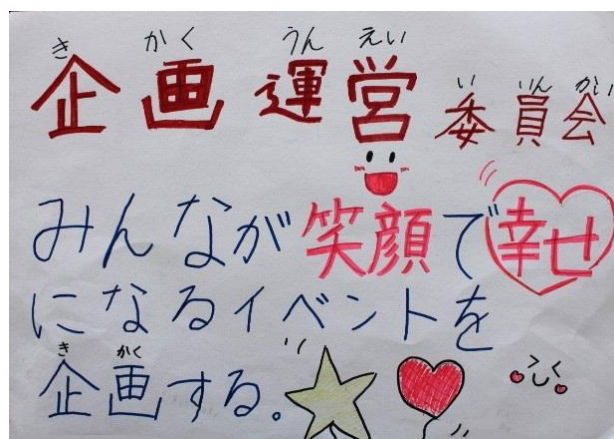 き かく うん えい い いん かい
企画運営委員会
みんなが笑顔で幸せ
になるイベントを
き かく
企画する。